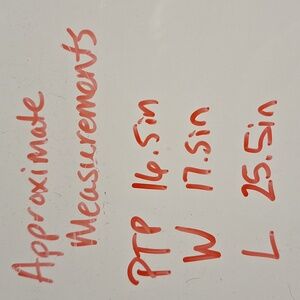 Approximate
Measurements
PTP 14.5in
W 17.5in
L 25.5in